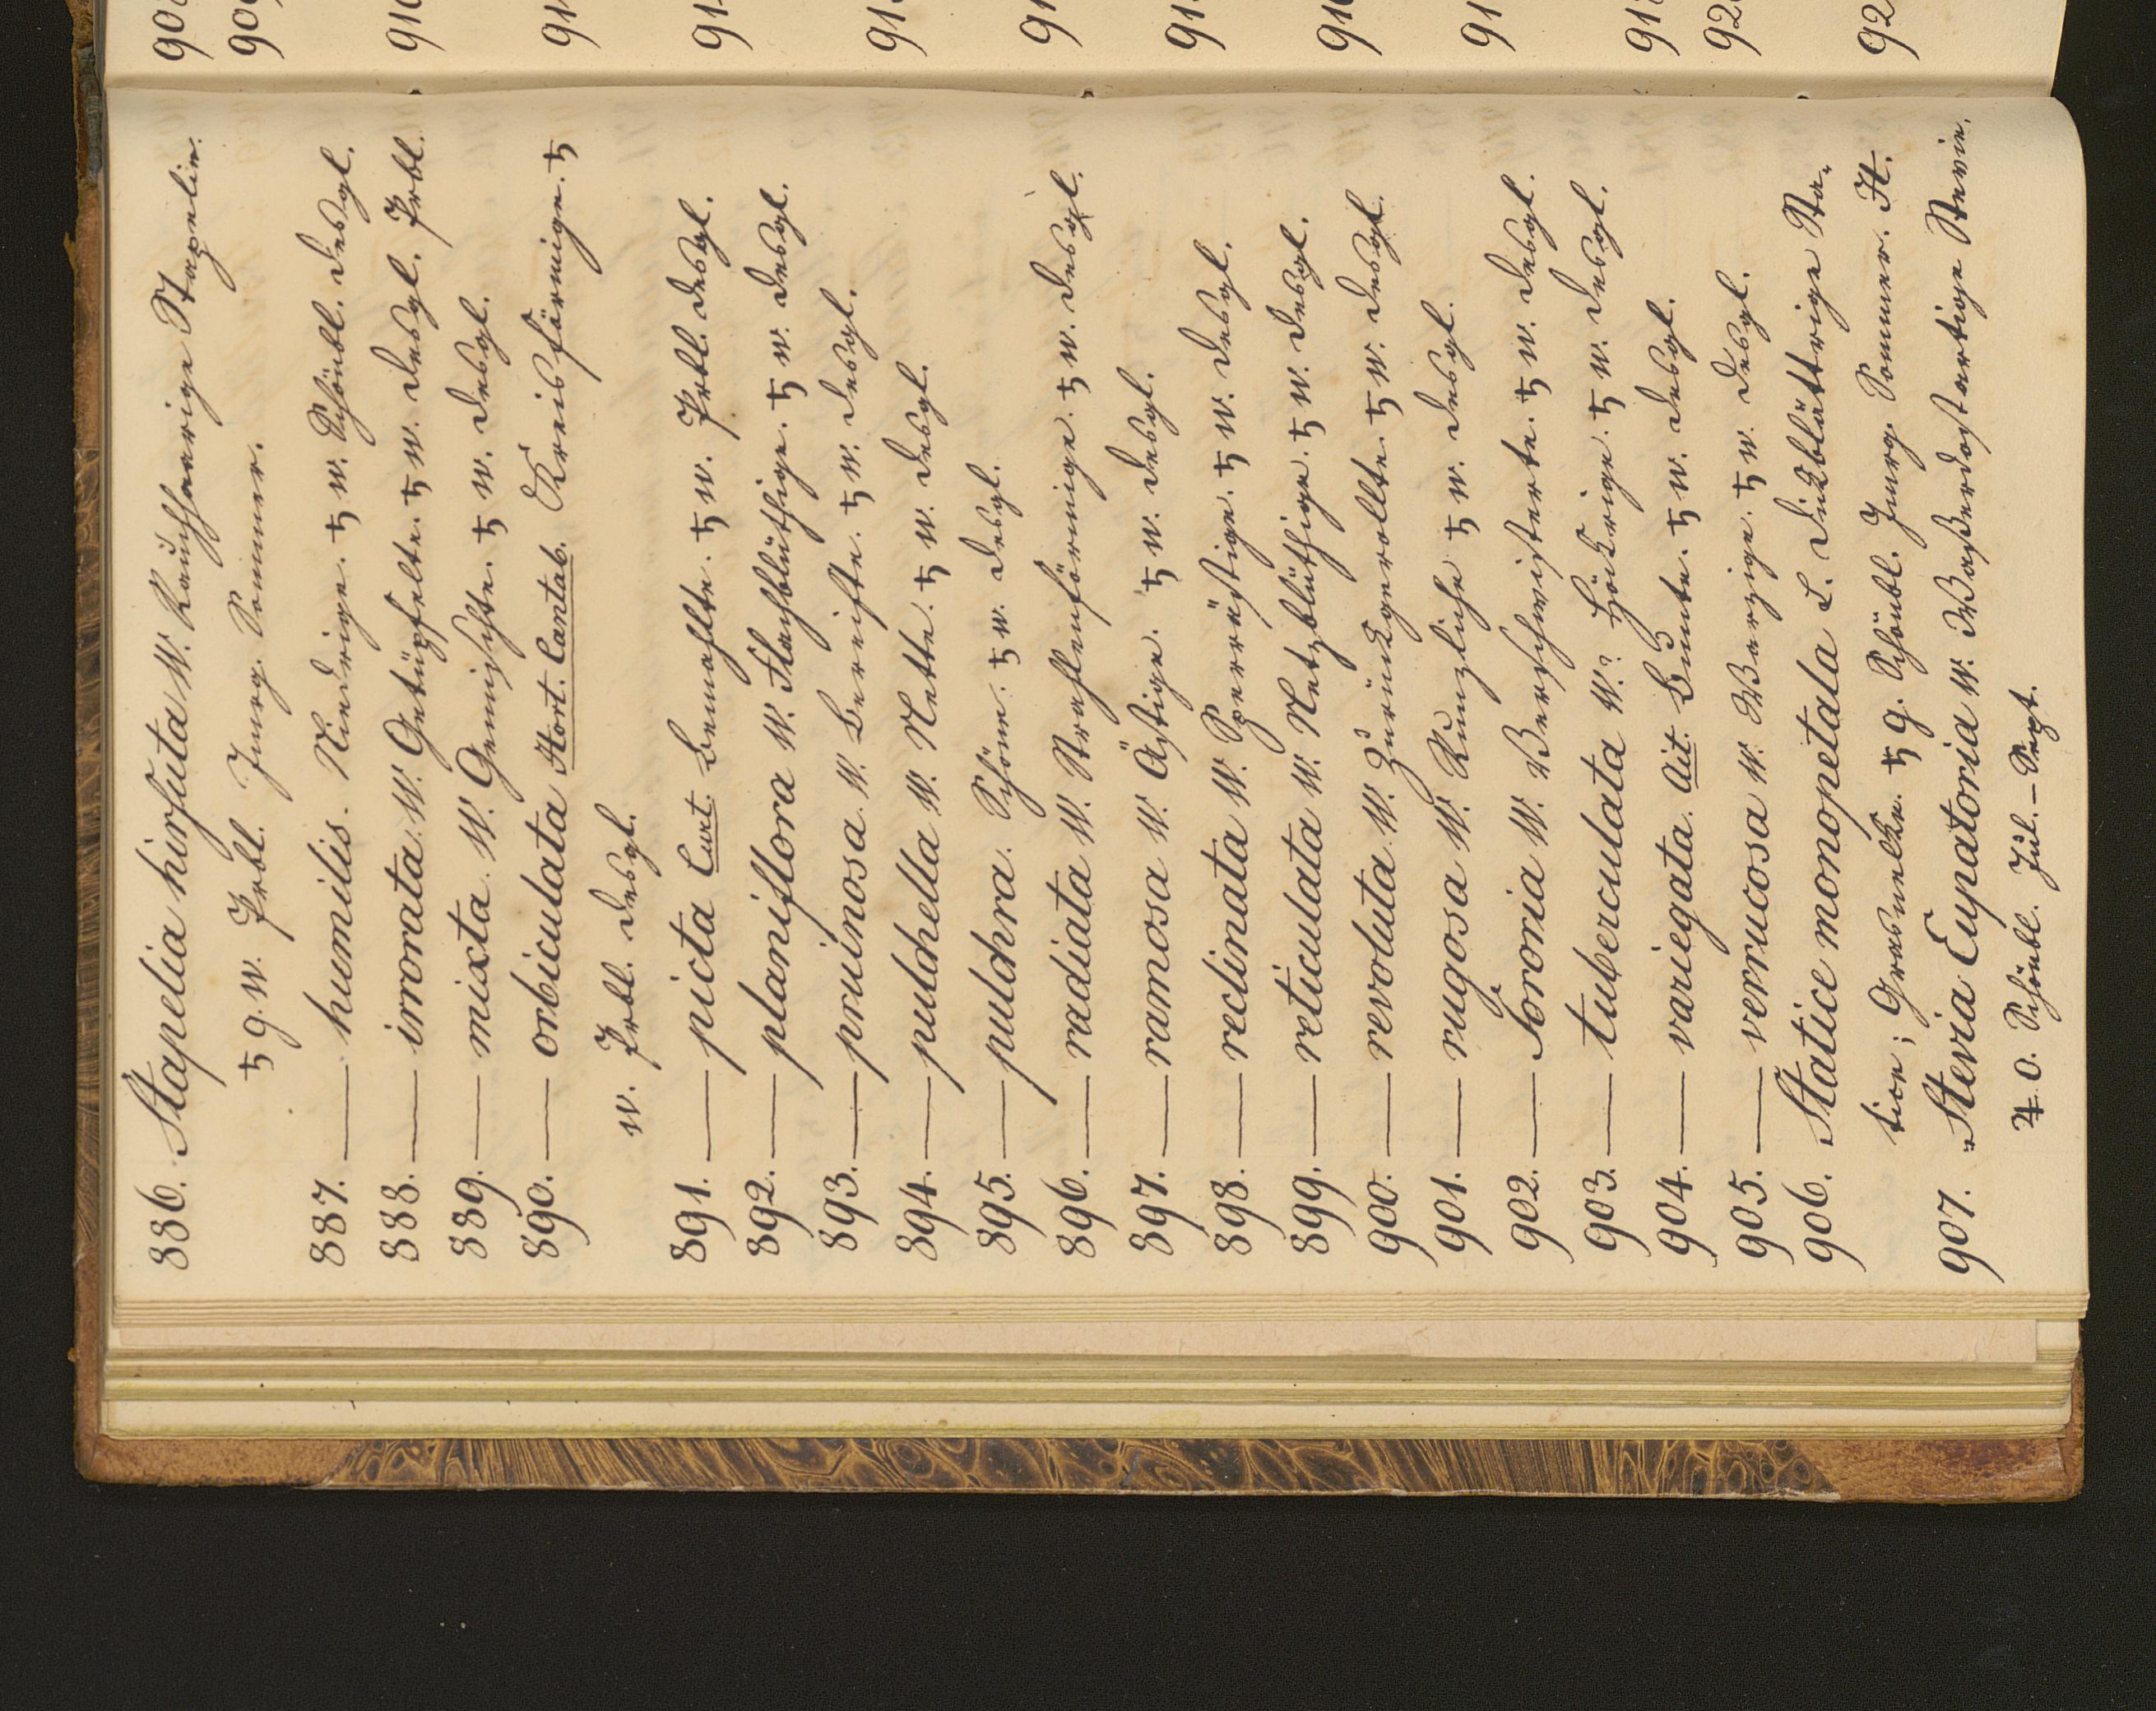 886. Stapelia hirsuta W. Rauhhaarige Stapelie.
♄ g. W. Frbl. Juny. Sommer.
887. — humilis. Niedrige. ♄ w. Schönbl. desgl.
888. — irrorata. W. Getüpfelte. ♄ w. desgl. Frbl.
889. — mixta. W. Gemischte. ♄ w. desgl.
890. — orbiculata Hort. Cantab. Kreisförmige. ♄
w. Frbl. desgl.
891. — picta Curt. Bemahlte. ♄ w. Frbl. desgl.
892. — planiflora W. Flachblüthige. ♄ w. desgl.
893. — pruinosa. W. Bereifte. ♄ w. desgl.
894. — pulchella W. Nette. ♄ w. desgl.
895. — pulchra. Schöne. ♄ w. desgl.
896. — radiata W. Strahlenförmige. ♄ w. desgl.
897. — ramosa W. Ästige. ♄ w. desgl.
898. — reclinata W. Sperrästige. ♄ w. desgl.
899. — reticulata W. Netzblüthige. ♄ w. desgl.
900. — revoluta. W. Zurückgerollte. ♄ w. desgl.
901. — rugosa W. Runzliche ♄ w. desgl.
902. — Sororia W. Verschwisterte. ♄ w. desgl.
903. — tuberculata W? Höckrige. ♄ w. desgl.
904. — variegata. Ait. Bunte. ♄ w. desgl.
905. — verrucosa W. Warzige. ♄ w. desgl.
906. Statice monopetala L. Dickblättrige Sta-
tice; Grasnelke. ♄ g. Schönbl. Juny. Sommer. H.
907. Stevia Eupatoria W. Waßerdostartige Stevie.
♃ O. Schönbl. Jul. - Sept.